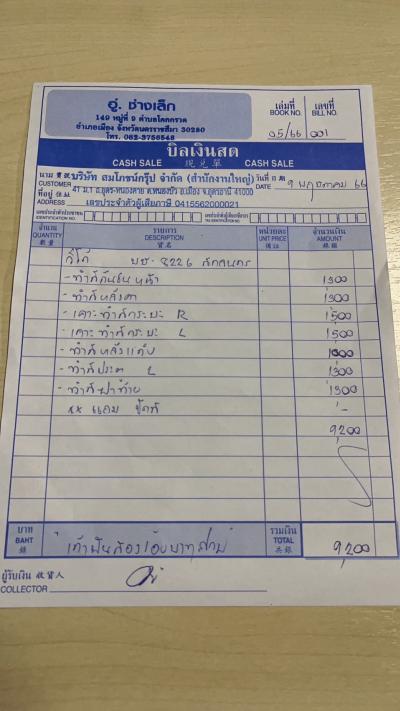 อู่. ช่างเล็ก
149 หมู่ที่ 9 ตำบลโคกกรวด
อำเภอเมือง จังหวัดนครราชสีมา 30280
โทร. 082-3756548
เล่มที่ เลขที่
BOOK NO. BILL NO.
05/66 001
บิลเงินสด
CASH SALE 現兌單 CASH SALE
นาม บริษัท สมโภชน์กรุ๊ป จำกัด (สำนักงานใหญ่) วันที่
CUSTOMER DATE 9 พฤษภาคม 66
ที่อยู่ 41 ม.1 ถ.อุดร-หนองคาย ต.หนองบัว อ.เมือง จ.อุดรธานี 41000
ADDRESS เลขประจำตัวผู้เสียภาษี 0415562000021
จำนวน รายการ หน่วยละ จำนวนเงิน
QUANTITY DESCRIPTION UNIT PRICE AMOUNT
วีโก้ บช. 8226 สกลนคร
- ทำสีกันชนหน้า 1300
- ทำสีหลังคา 1300
- เคาะทำสีกระบะ R 1500
- เคาะทำสีกระบะ L 1500
- ทำสีหลังแค็บ 1000
- ทำสีประตู L 1300
- ทำสีฝาท้าย 1300
** แถม -
9200
บาท รวมเงิน
BAHT TOTAL
เก้าพันสองร้อยบาทถ้วน 9,200
ผู้รับเงิน 收貨人
COLLECTOR